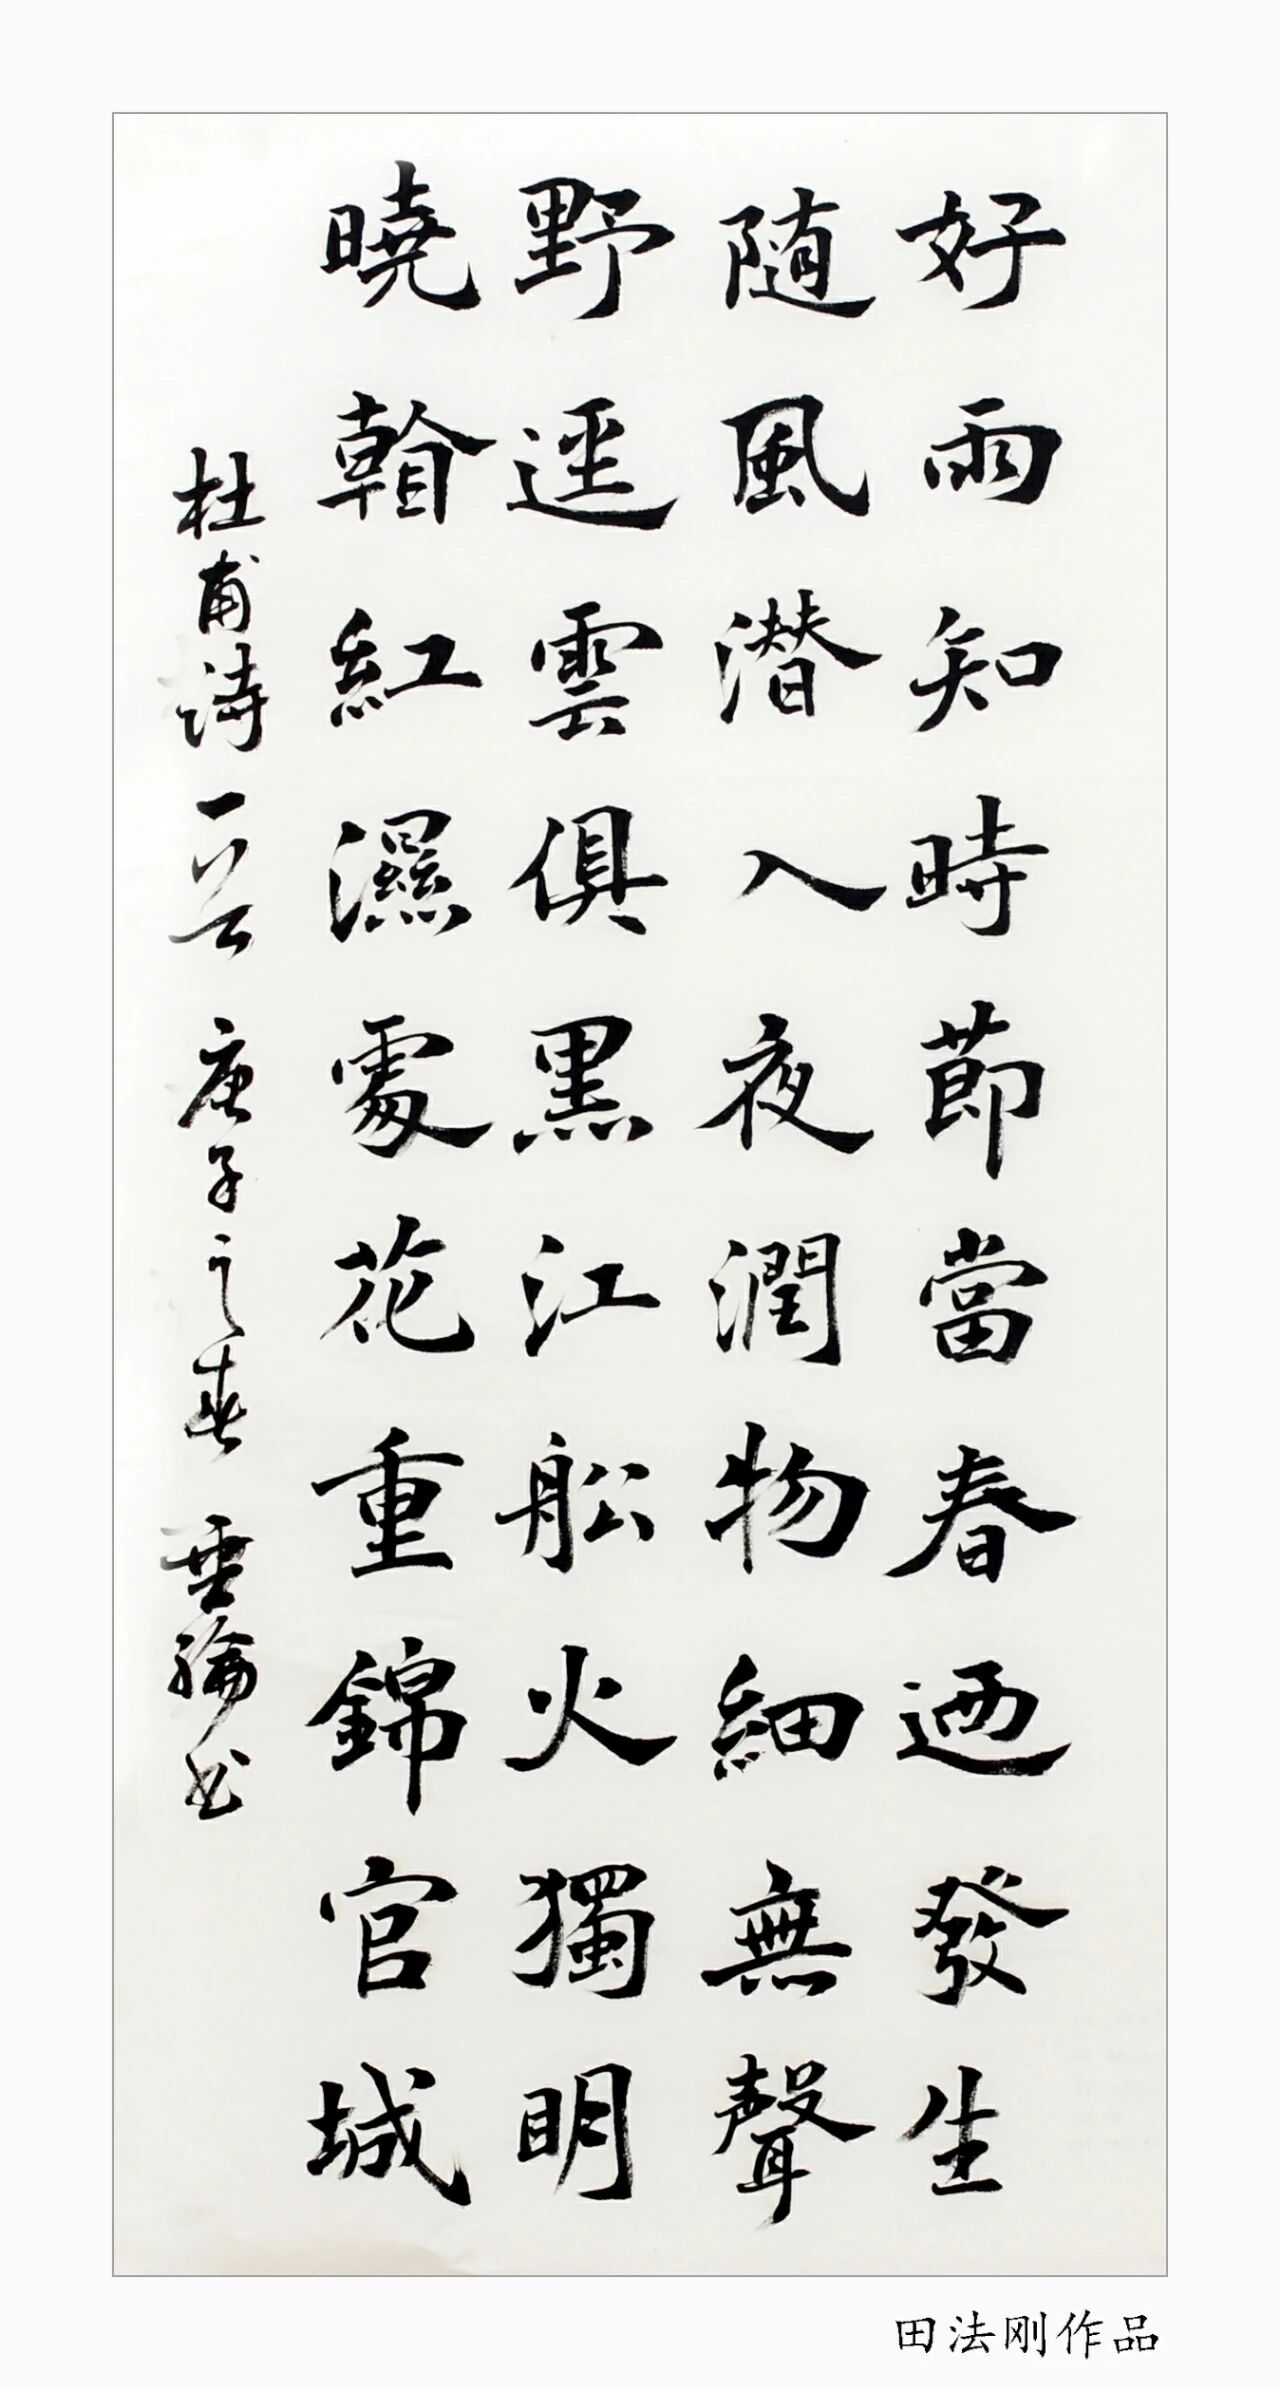 好雨知時節當春迺發生
随風潜入夜潤物細無聲
野逕雲俱黑江舩火獨明
曉看紅濕處花重錦官城
杜甫詩一首 庚子之春 垂綸书
田法刚作品